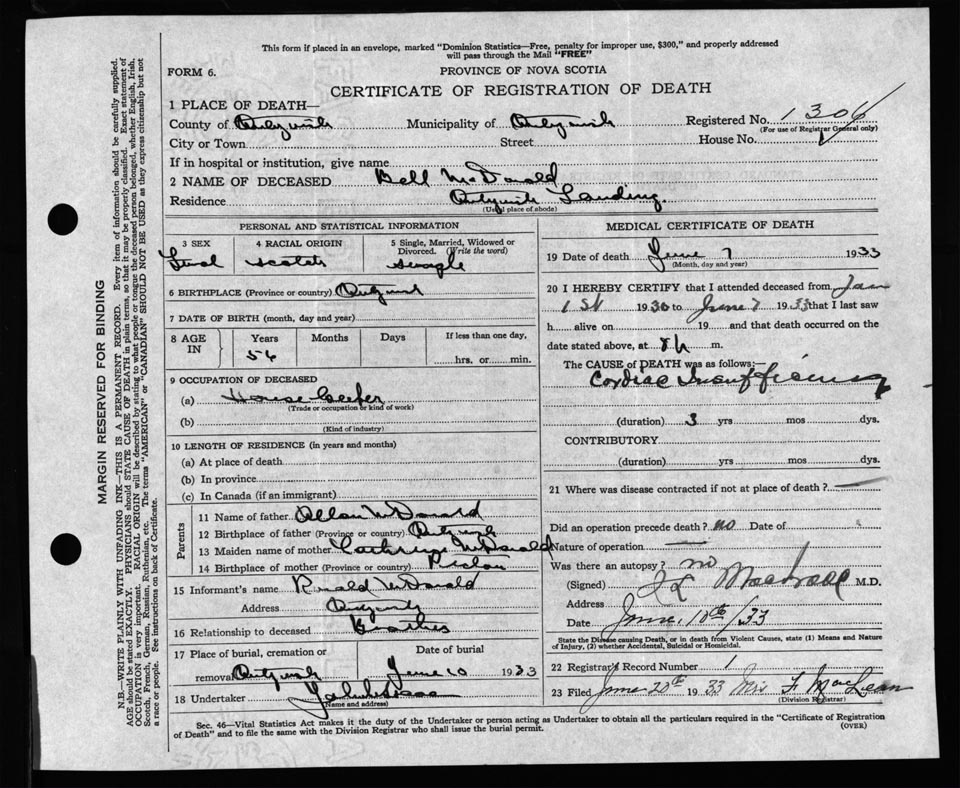 This form if placed in an envelope, marked "Dominion Statistics—Free, penalty for improper use, $300," and properly addressed
will pass through the Mail "FREE"
FORM 6.
PROVINCE OF NOVA SCOTIA
CERTIFICATE OF REGISTRATION OF DEATH
1 PLACE OF DEATH—
Registered No. 1306
(For use of Registrar General only)
County of Municipality of
City or Town Street House No.
If in hospital or institution, give name
2 NAME OF DECEASED Bell McDonald
Residence Landing
(Usual place of abode)
PERSONAL AND STATISTICAL INFORMATION
3 SEX 4 RACIAL ORIGIN 5 Single, Married, Widowed or
Divorced. (Write the word)
Scotch single
6 BIRTHPLACE (Province or country)
7 DATE OF BIRTH (month, day and year)
8 AGE IN Years Months Days If less than one day,
56 hrs. or min.
9 OCCUPATION OF DECEASED
(a) House keeper
(Trade or occupation or kind of work)
(b)
(Kind of industry)
10 LENGTH OF RESIDENCE (in years and months)
(a) At place of death
(b) In province
(c) In Canada (if an immigrant)
Parents
11 Name of father Allan McDonald
12 Birthplace of father (Province or country)
13 Maiden name of mother McDonald
14 Birthplace of mother (Province or country) Pictou
15 Informant's name Ronald McDonald
Address
16 Relationship to deceased Brother
17 Place of burial, cremation or Date of burial
removal June 10 1933
18 Undertaker
(Name and address)
MEDICAL CERTIFICATE OF DEATH
19 Date of death June 7 1933
(Month, day and year)
20 I HEREBY CERTIFY that I attended deceased from Jan
1st 1930 to June 7 1933 that I last saw
h alive on 19 and that death occurred on the
date stated above, at m.
The CAUSE of DEATH was as follows:
Cardiac Insufficiency
(duration) 3 yrs mos dys.
CONTRIBUTORY
(duration) yrs mos dys.
21 Where was disease contracted if not at place of death? —
Did an operation precede death? no Date of
Nature of operation —
Was there an autopsy? no
(Signed) M.D.
Address
Date June 10th/33
State the Disease causing Death, or in death from Violent Causes, state (1) Means and Nature
of Injury, (2) whether Accidental, Suicidal or Homicidal.
22 Registrar's Record Number 1
23 Filed June 20th 1933 F. MacLean
(Division Registrar)
Sec. 46—Vital Statistics Act makes it the duty of the Undertaker or person acting as Undertaker to obtain all the particulars required in the "Certificate of Registration
of Death" and to file the same with the Division Registrar who shall issue the burial permit.
(OVER)
MARGIN RESERVED FOR BINDING
N.B.—WRITE PLAINLY WITH UNFADING INK—THIS IS A PERMANENT RECORD. Every item of information should be carefully supplied.
AGE should be stated EXACTLY. PHYSICIANS should STATE CAUSE OF DEATH in plain terms, so that it may be properly classified. Exact statement of
OCCUPATION is very important. RACIAL ORIGIN will be described by stating to what people or tongue the deceased person belonged, whether English, Irish,
Scotch, French, German, Russian, Ruthenian, etc. The terms "AMERICAN" or "CANADIAN" SHOULD NOT BE USED as they express citizenship but not
a race or people. See instructions on back of Certificate.